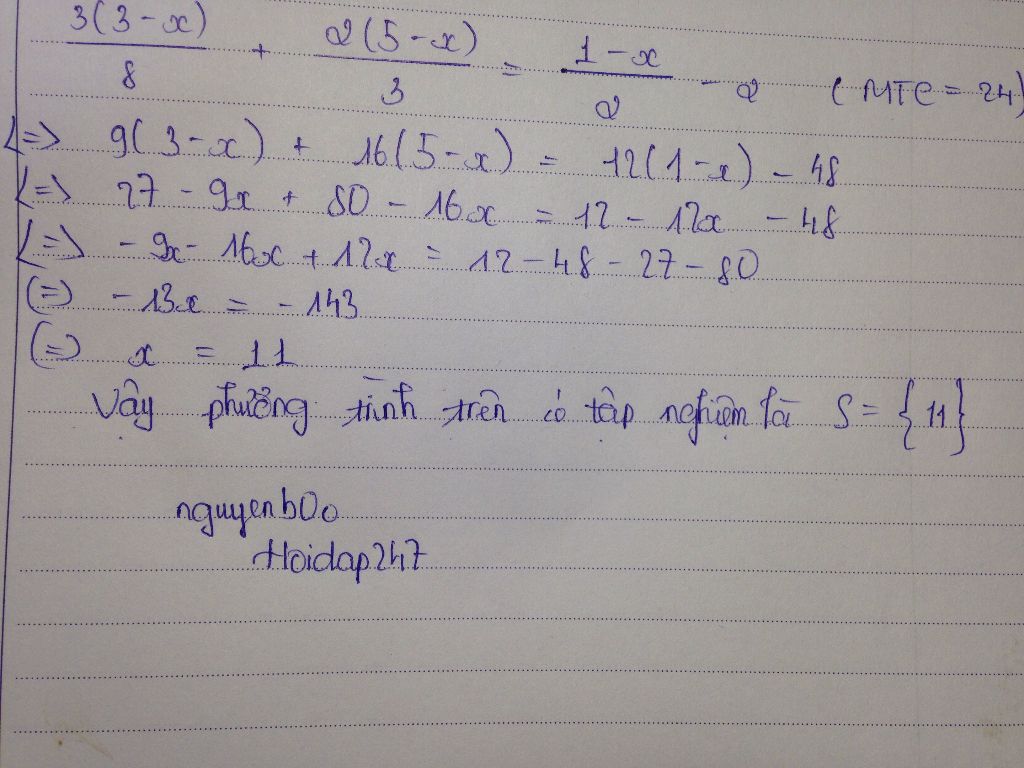 3(3-x)/8 + 2(5-x)/3 = 1-x/2 - 2 (MTC = 24)
<=> 9(3-x) + 16(5-x) = 12(1-x) - 48
<=> 27 - 9x + 80 - 16x = 12 - 12x - 48
<=> -9x - 16x + 12x = 12 - 48 - 27 - 80
(=) -13x = -143
(=) x = 11
Vậy phương trình trên có tập nghiệm là S = {11}
nguyenb0o
Hoidap247